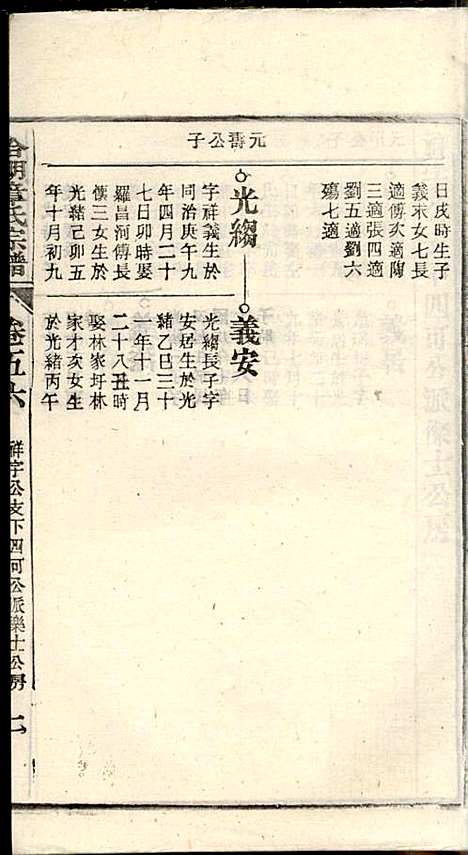 元壽公子
日戌時生子
義釆女七長
適傅次適陶
三適張四適
劉五適劉六
殤七適
光縐
字祥義生於
同治庚午九
年四月二十
七日卯時娶
羅昌河傅長
傑三女生於
光緒己卯五
年十月初九
義安
光縐長子字
安居生於光
緒乙巳三十
一年十一月
二十八丑時
娶林家圩林
家才亥女生
於光緒丙午
合湖章氏宗譜
卷五六
祥宇公支下四河公派樂士公房